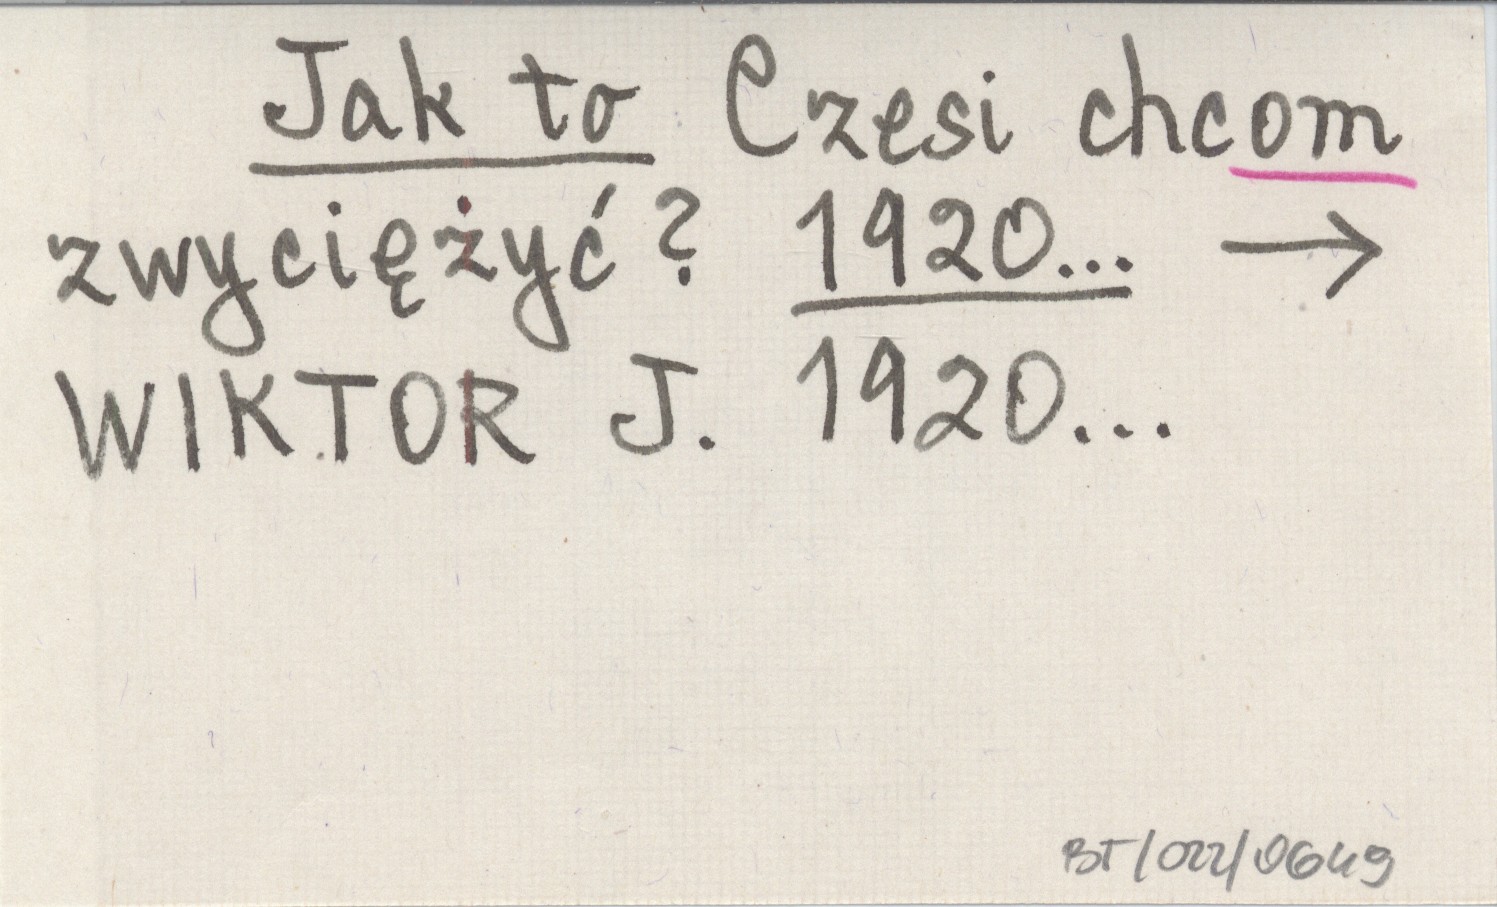 Jak to Czesi chcom
zwyciężyć? 1920... →
WIKTOR J. 1920...
BT/022/0649